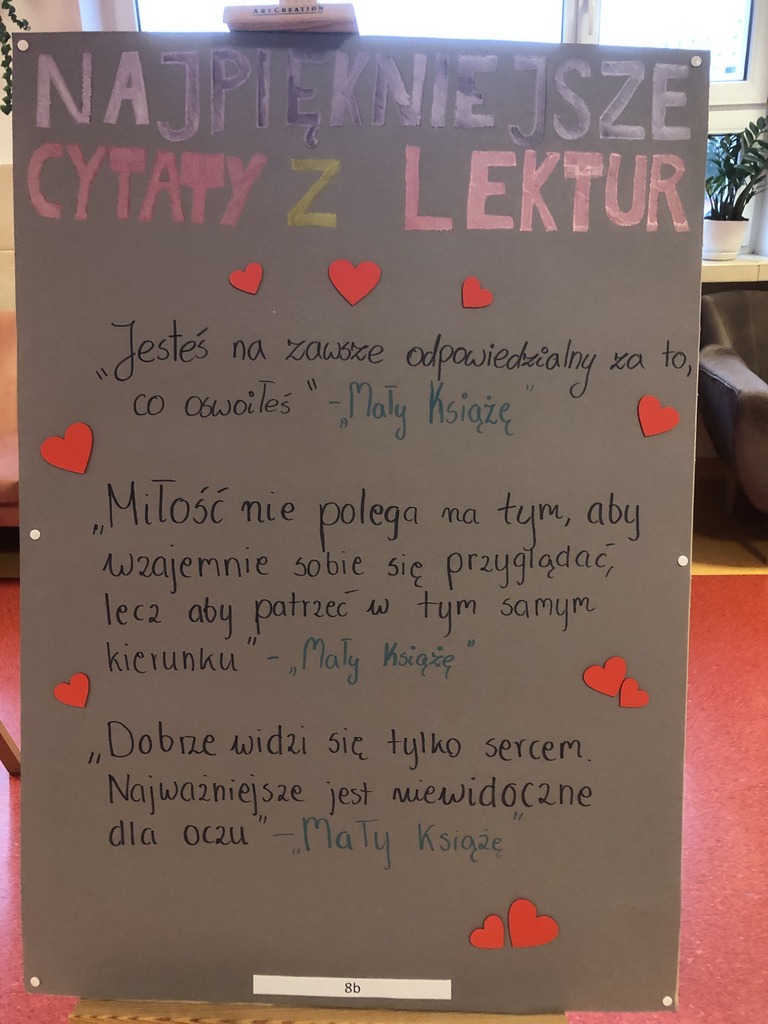 ArtCreation
NAJPIĘKNIEJSZE
CYTATY Z LEKTUR
„Jesteś na zawsze odpowiedzialny za to,
co oswoiłeś" - „Mały Książę"
„Miłość nie polega na tym, aby
wzajemnie sobie się przyglądać,
lecz aby patrzeć w tym samym
kierunku" - „Mały Książę"
„Dobrze widzi się tylko sercem.
Najważniejsze jest niewidoczne
dla oczu" - „Mały Książę"
8b